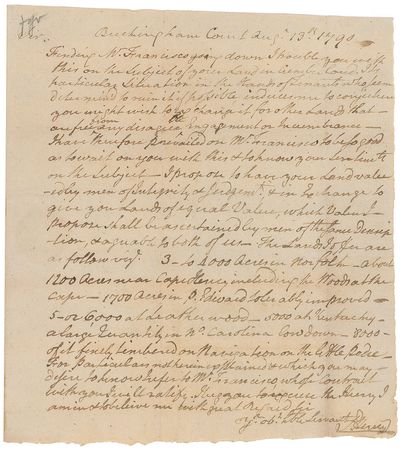 Sir, Buckingham Court Augt. 13th 1790
Finding Mr. Francisco going down I trouble you with
this on the Subject of your Land in Cumberland. Its
particular Situation in the hands of Tenants who seem
determined to ruin it if possible induces me to conclude
you might wish to exchange it for other Lands that
are free from any disagreeable Engagement or Incumbrance
I have therefore prevailed on Mr. Francisco to be so good
as to wait on you with this & to know your Sentiments
on the Subject I propose to have your Land valued
by men of Integrity & Judgment, & in Exchange to
give you Lands of equal Value, which Value I
propose shall be ascertained by men of the same Descrip
tion, & agreeable to both of us The Lands I offer are
as follow vizt. 3 to 4000 Acres in Norfolk about
1200 Acres near Cape Henry including the Woods at the
Cape 1700 Acres in P. Edward tolerably improved
5 or 6000 at Leatherwood 5000 at Kentucky
a large Quantity in No. Carolina low down 8000
of it finely timbered on Navigation on the little Pedee
For Particulars not herein explained & which you may
desire to know I refer to Mr. Francisco, whose Contract
with you I will ratify.
am
with great Regard Sir
yr. obt. Servant
P. Henry